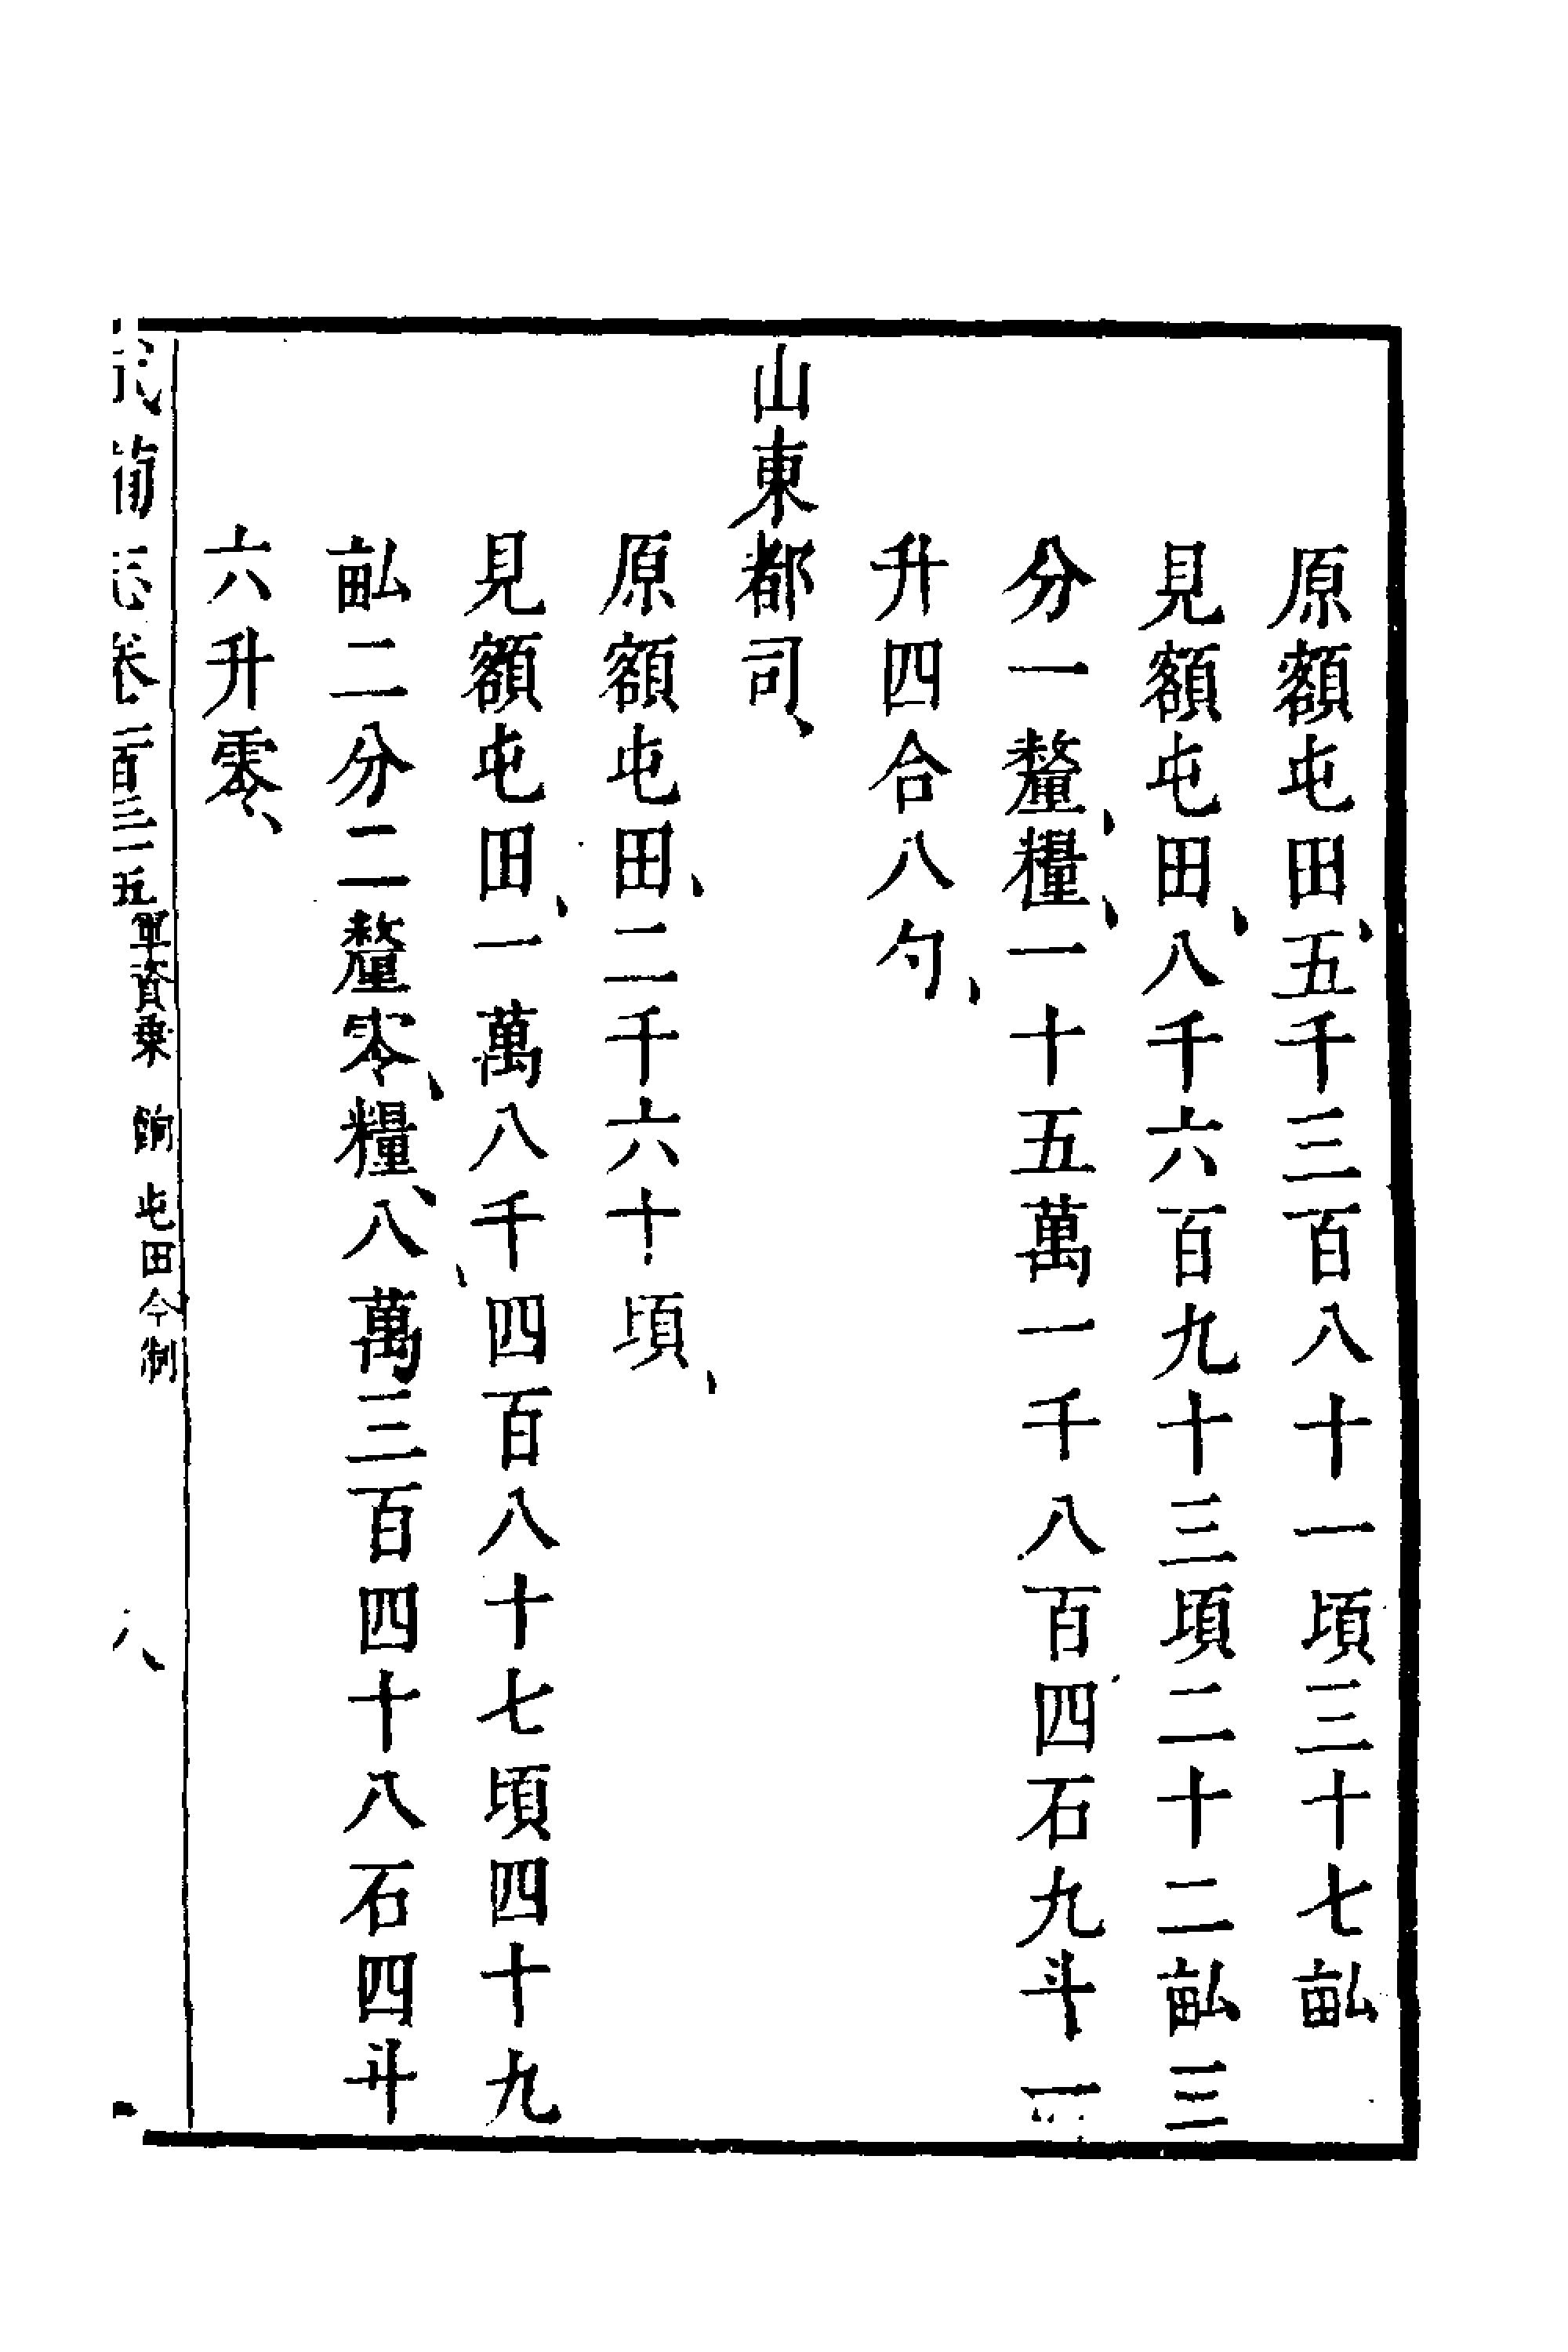 原額屯田、五千三百八十一頃三十七畝
見額屯田、八千六百九十三頃二十二畝三
分一釐、糧、一十五萬一千八百四石九斗
升四合八勺、
山東都司、
原額屯田、二千六十頃、
見額屯田、一萬八千、四百八十七頃四十九
畝二分二釐零、糧、八萬三百四十八石四斗
六升零、
武備志卷一百三十五 軍資乗 餉 屯田今制 八